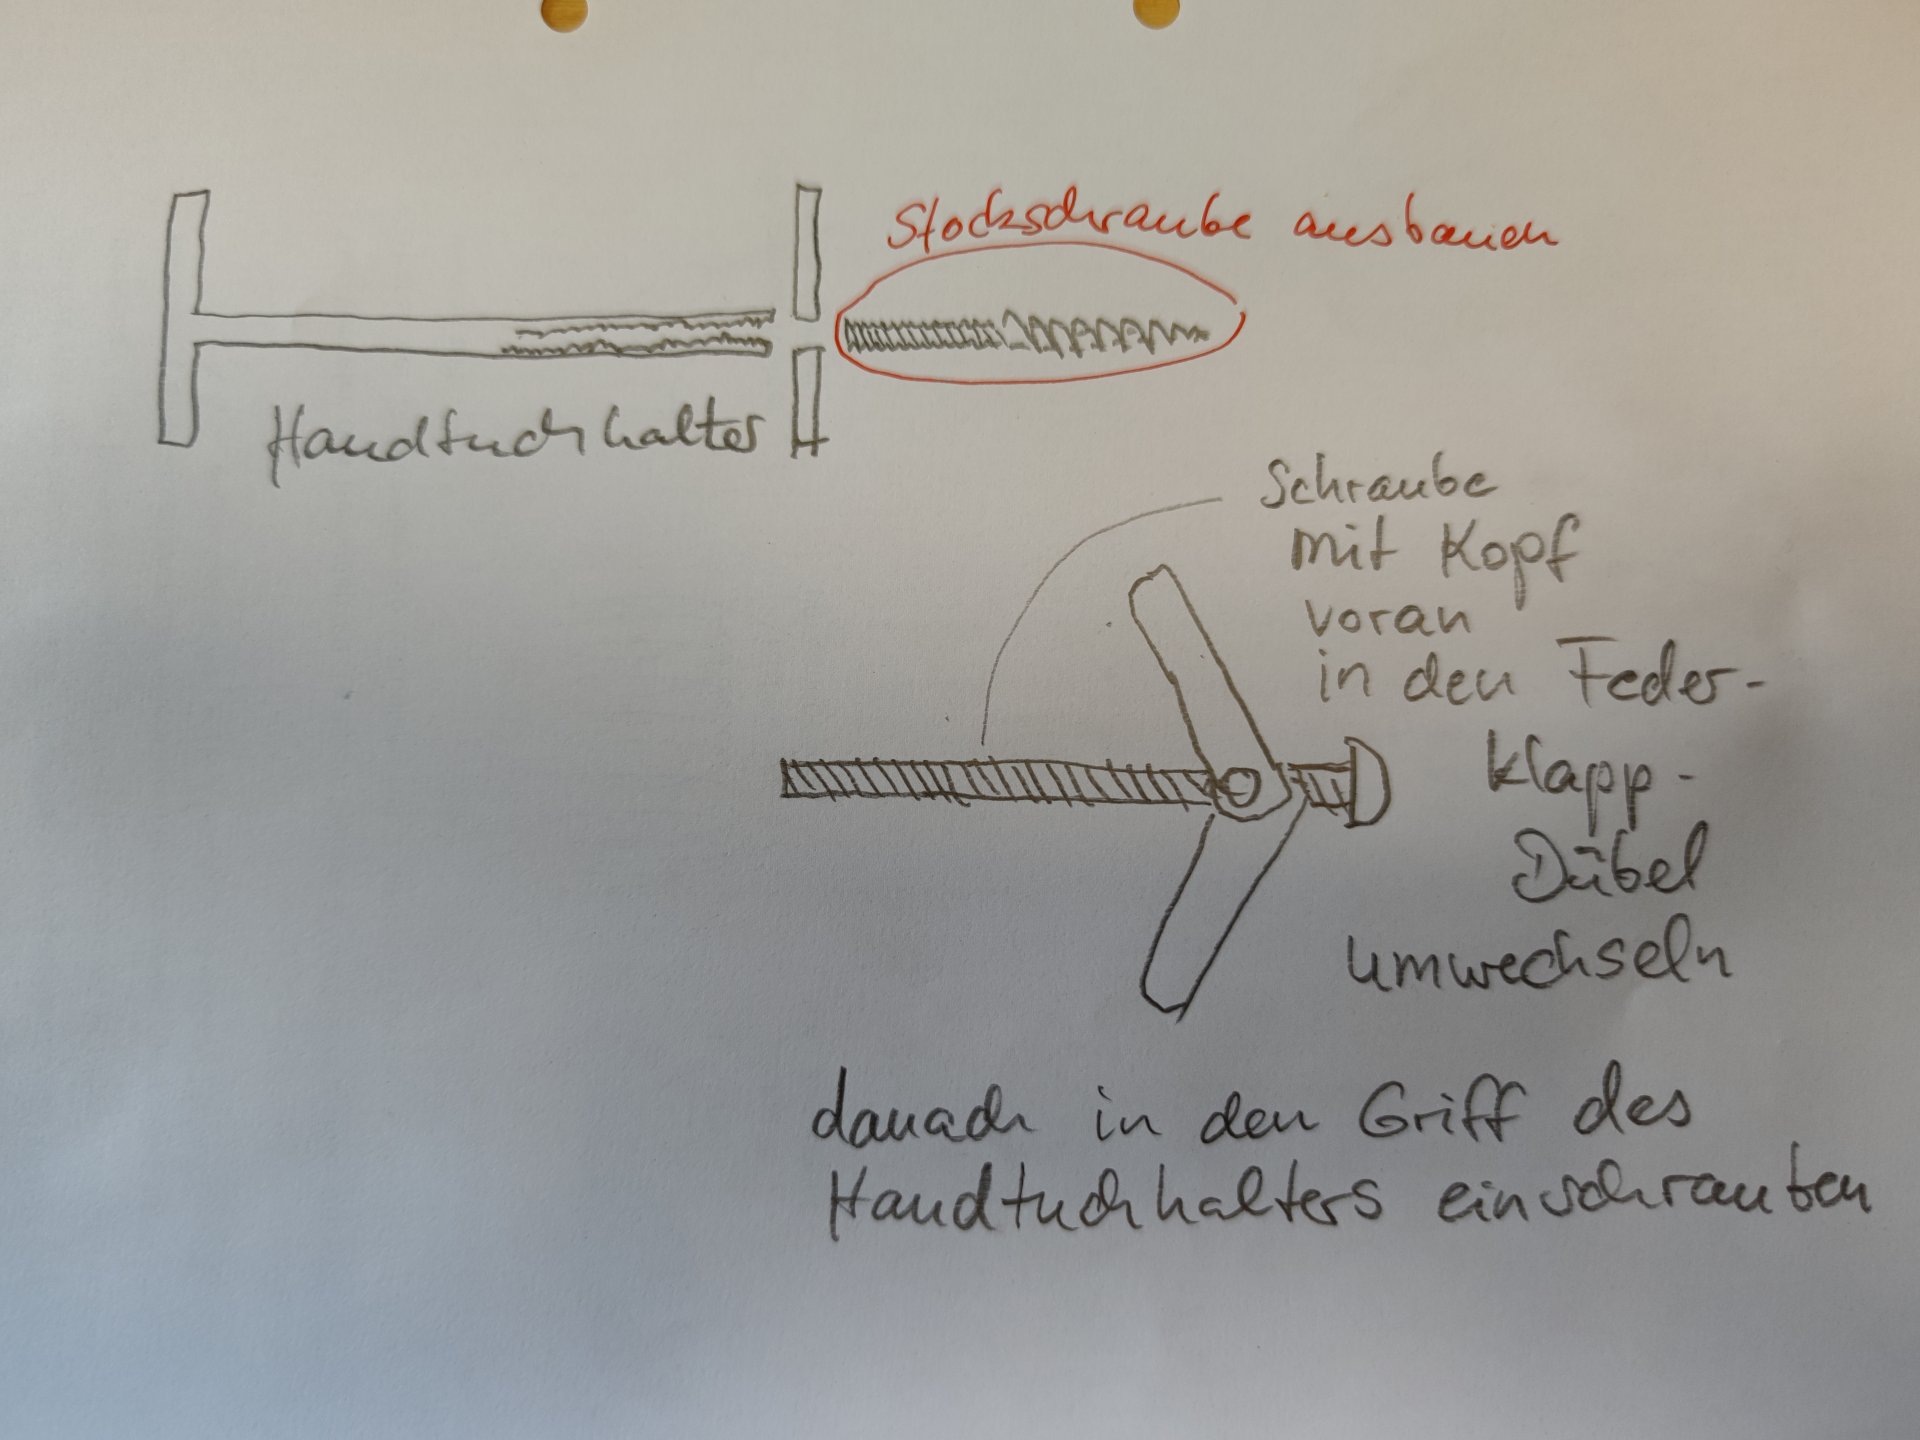 Stockschraube ausbauen
Handtuchhalter
Schraube
mit Kopf
voran
in den Feder-
klapp-
Dübel
umwechseln
danach in den Griff des
Handtuchhalters einschrauben